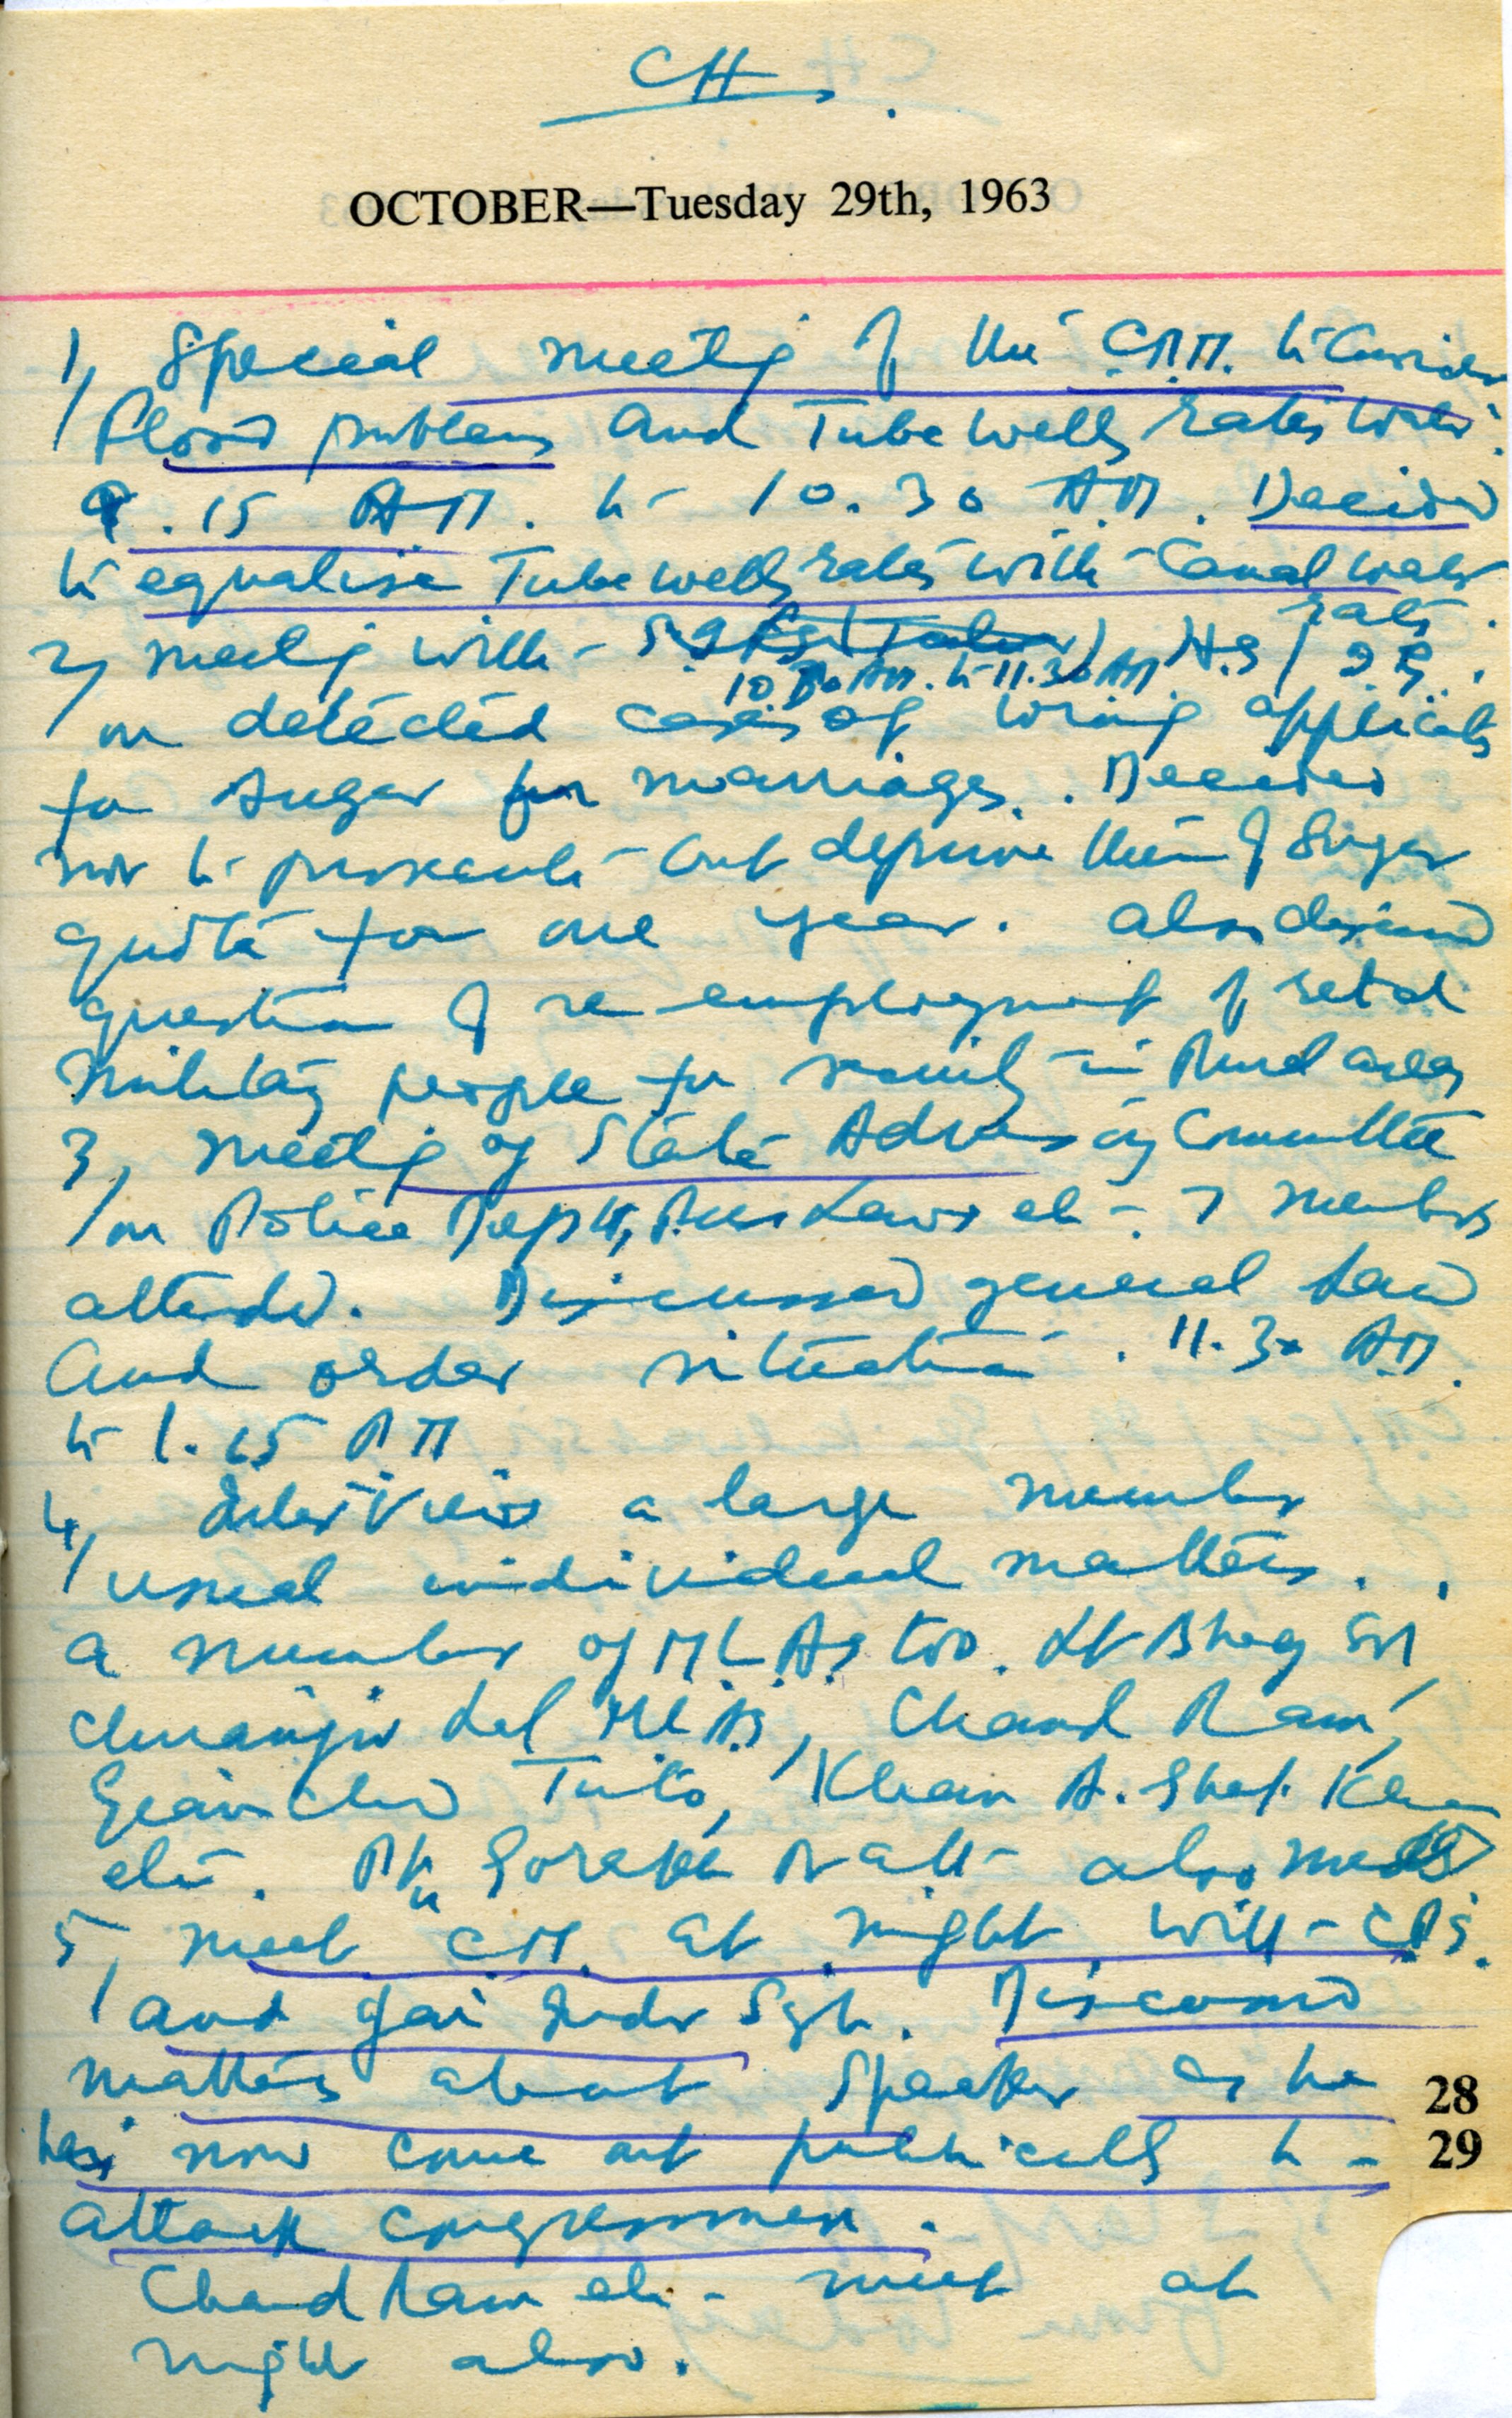 CH
OCTOBER—Tuesday 29th, 1963
1, Special meeting of the C.M. to Consider
Flood problems and Tube wells rates
9.15 AM. to 10.30 A.M. Decided
to equalise Tube wells rates with Canal water
rates.
2, meeting with
10.30 AM. to 11.30 AM
on detected cases of wrong applicats
for sugar for marriages. Decided
not to prosecute but deprive them of Sugar
quota for one year. also
question of re employment of retd
military people for security in Rural areas
3, meeting of State Advisory Committee
on Police Deptt, 7 members
attended. Discussed general Law
and order situation. 11.30 AM.
to 1.15 PM
4, Interview a large number
usual individual matters.
a number of M.L.As too. Lt Bhag
Lal MLA, Chand Ram,
Gian Chand Tuto, Khan A. Khan
etc. also
5, meet CM. at night with CPS.
and Jai Inder Sgh. Discussed
matters about Speaker as he
has now come out publically to
attack congressmen.
Chand Ram etc meet at
night also.
28
29